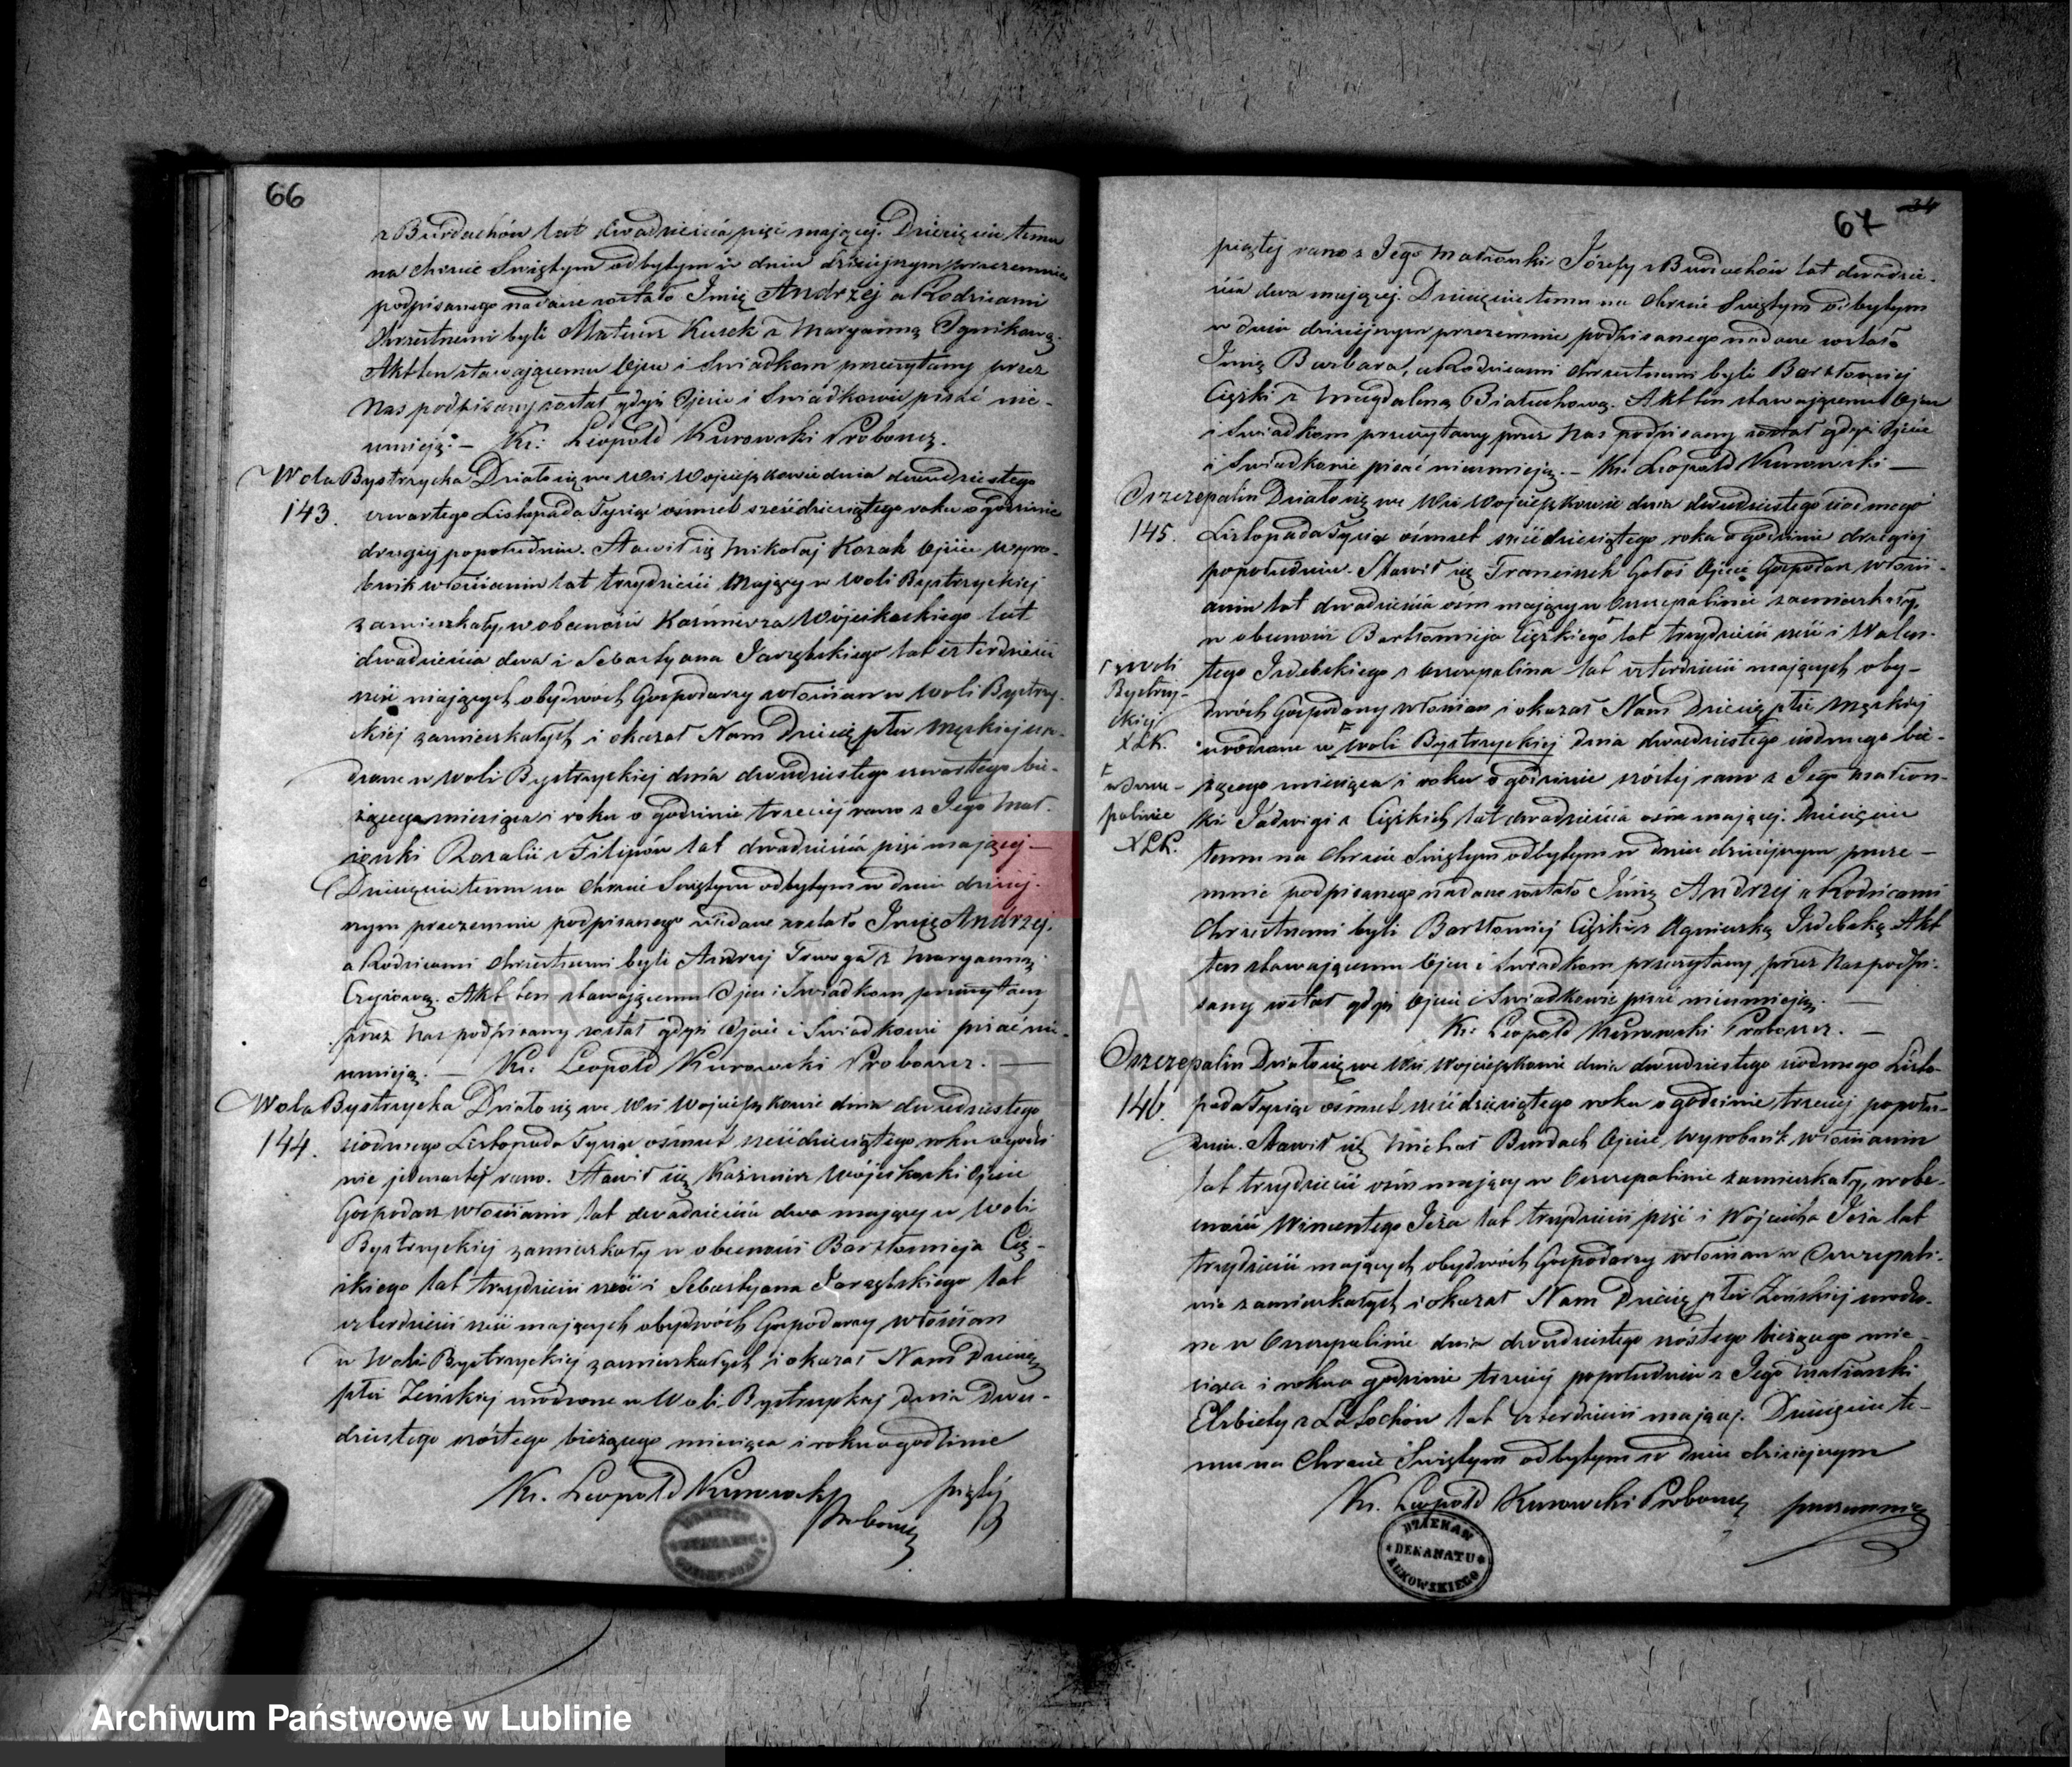 66
z Burdachów lat dwadzieścia pięć mającej. Dziecięciu temu
na Chrzcie Świętym odbytym w dniu dzisiejszym przezemnie
podpisanego nadane zostało Imię Andrzej a Rodzicami
Chrzestnemi byli Mateusz Kusek z Maryanną
Akt ten stawającemu Ojcu i Świadkom przeczytany przez
Nas podpisany został gdyż Ojciec i Świadkowie pisać nie-
umieją. — Ks: Leopold Kurowski Proboszcz.
Wola Bystrzycka Działo się we Wsi Wojcieszkowie dnia dwudziestego
143. czwartego Listopada Tysiąc ośmset sześćdziesiątego roku o godzinie
drugiej popołudniu. Stawił się Mikołaj Kozak Ojciec wyro-
bnik włościanin lat trzydzieści mający w Woli Bystrzyckiej
zamieszkały, w obecności Kazimierza Wójcikoskiego lat
dwadzieścia dwa i Sebastyana Jarzębskiego lat czterdzieści
sześć mających obydwóch Gospodarzy włościan w Woli Bystrzy-
ckiej zamieszkałych i okazał Nam Dziecię płci męzkiej uro-
dzone w Woli Bystrzyckiej dnia dwudziestego czwartego bie-
żącego miesiąca i roku o godzinie trzeciej rano z Jego Mał-
żonki Rozalii z Filipów lat dwadzieścia pięć mającej —
Dziecięciu temu na Chrzcie Świętym odbytym w dniu dzisiej-
szym przezemnie podpisanego nadane zostało Imię Andrzej,
a Rodzicami Chrzestnemi byli Andrzej Trwoga z Maryanną
Akt ten stawającemu Ojcu i Świadkom przeczytany
przez Nas podpisany został gdyż Ojciec i Świadkowie pisać nie-
umieją. — Ks: Leopold Kurowski Proboszcz. —
Wola Bystrzycka Działo się we Wsi Wojcieszkowie dnia dwudziestego
144. siódmego Listopada Tysiąc ośmset sześćdziesiątego roku o godzi
nie jedenastej rano. Stawił się Kazimierz Wójcikoski Ojciec
Gospodarz włościanin lat dwadzieścia dwa mający w Woli
Bystrzyckiej zamieszkały w obecności Bartłomieja Cię-
zkiego lat trzydzieści sześć i Sebastyana Jarzębskiego lat
czterdzieści sześć mających obydwóch Gospodarzy włościan
w Woli Bystrzyckiej zamieszkałych i okazał Nam Dziecię
płci Żeńskiej urodzone w Woli Bystrzyckiej dnia dwu-
dziestego szóstego bieżącego miesiąca i roku o godzinie
Ks. Leopold Kurowski Proboszcz piątej
67
34
piątej rano z Jego Małżonki Józefy z Burdachów lat dwadzie-
ścia dwa mającej. Dziecięciu temu na Chrzcie Świętym odbytym
w dniu dzisiejszym przezemnie podpisanego nadane zostało
Imię Barbara, a Rodzicami Chrzestnemi byli Bartłomiej
Ciężki z Magdaleną Białuchową. Akt ten stawającemu Ojcu
i Świadkom przeczytany przez Nas podpisany został gdyż Ojciec
i Świadkowie pisać nieumieją. — Ks: Leopold Kurowski —
Oszczepalin Działo się we Wsi Wojcieszkowie dnia dwudziestego siódmego
145. Listopada Tysiąc ośmset sześćdziesiątego roku o godzinie drugiej
popołudniu. Stawił się Franciszek Gołoś Ojciec Gospodarz włości-
anin lat dwadzieścia ośm mający w Oszczepalinie zamieszkały,
w obecności Bartłomieja Ciężkiego lat trzydzieści sześć i Walen-
z Woli
Bystrzy-
ckiej
XLK.
tego Izdebskiego z Oszczepalina lat czterdzieści mających oby-
dwóch Gospodarzy włościan i okazał Nam Dziecię płci męzkiej
urodzone w Woli Bystrzyckiej dnia dwudziestego siódmego bie-
w Oszcze-
palinie
XLK.
żącego miesiąca i roku o godzinie szóstej rano z Jego małżon-
ki Jadwigi z Ciężkich lat dwadzieścia ośm mającej. Dziecięciu
temu na Chrzcie Świętym odbytym w dniu dzisiejszym przze-
mnie podpisanego nadane zostało Imię Andrzej a Rodzicami
Chrzestnemi byli Bartłomiej Ciężki z Agnieszką Izdebską Akt
ten stawającemu Ojcu i Świadkom przeczytany przez Nas podpi-
sany został gdyż Ojciec i Świadkowie pisać nieumieją. —
Ks: Leopold Kurowski Proboszcz. —
Oszczepalin Działo się we Wsi Wojcieszkowie dnia dwudziestego siódmego Listo-
146. pada Tysiąc ośmset sześćdziesiątego roku o godzinie trzeciej popołu-
dniu. Stawił się Michał Burdach Ojciec, wyrobnik włościanin
lat trzydzieści ośm mający w Oszczepalinie zamieszkały, w obe-
cności Wincentego Jeża lat trzydzieści pięć i Wojciecha Jeża lat
trzydzieści mających obydwóch Gospodarzy włościan w Oszczepali-
nie zamieszkałych i okazał Nam Dziecię płci Żeńskiej urodzo-
ne w Oszczepalinie dnia dwudziestego szóstego bieżącego mie-
siąca i roku o godzinie trzeciej popołudniu z Jego małżonki
Elżbiety z Latochów lat czterdzieści mającej. Dziecięciu te-
mu na Chrzcie Świętym odbytym w dniu dzisiejszym
Ks. Leopold Kurowski Proboszcz przezemnie
DZIEKAN
DEKANATU
ŁUKOWSKIEGO
Archiwum Państwowe w Lublinie